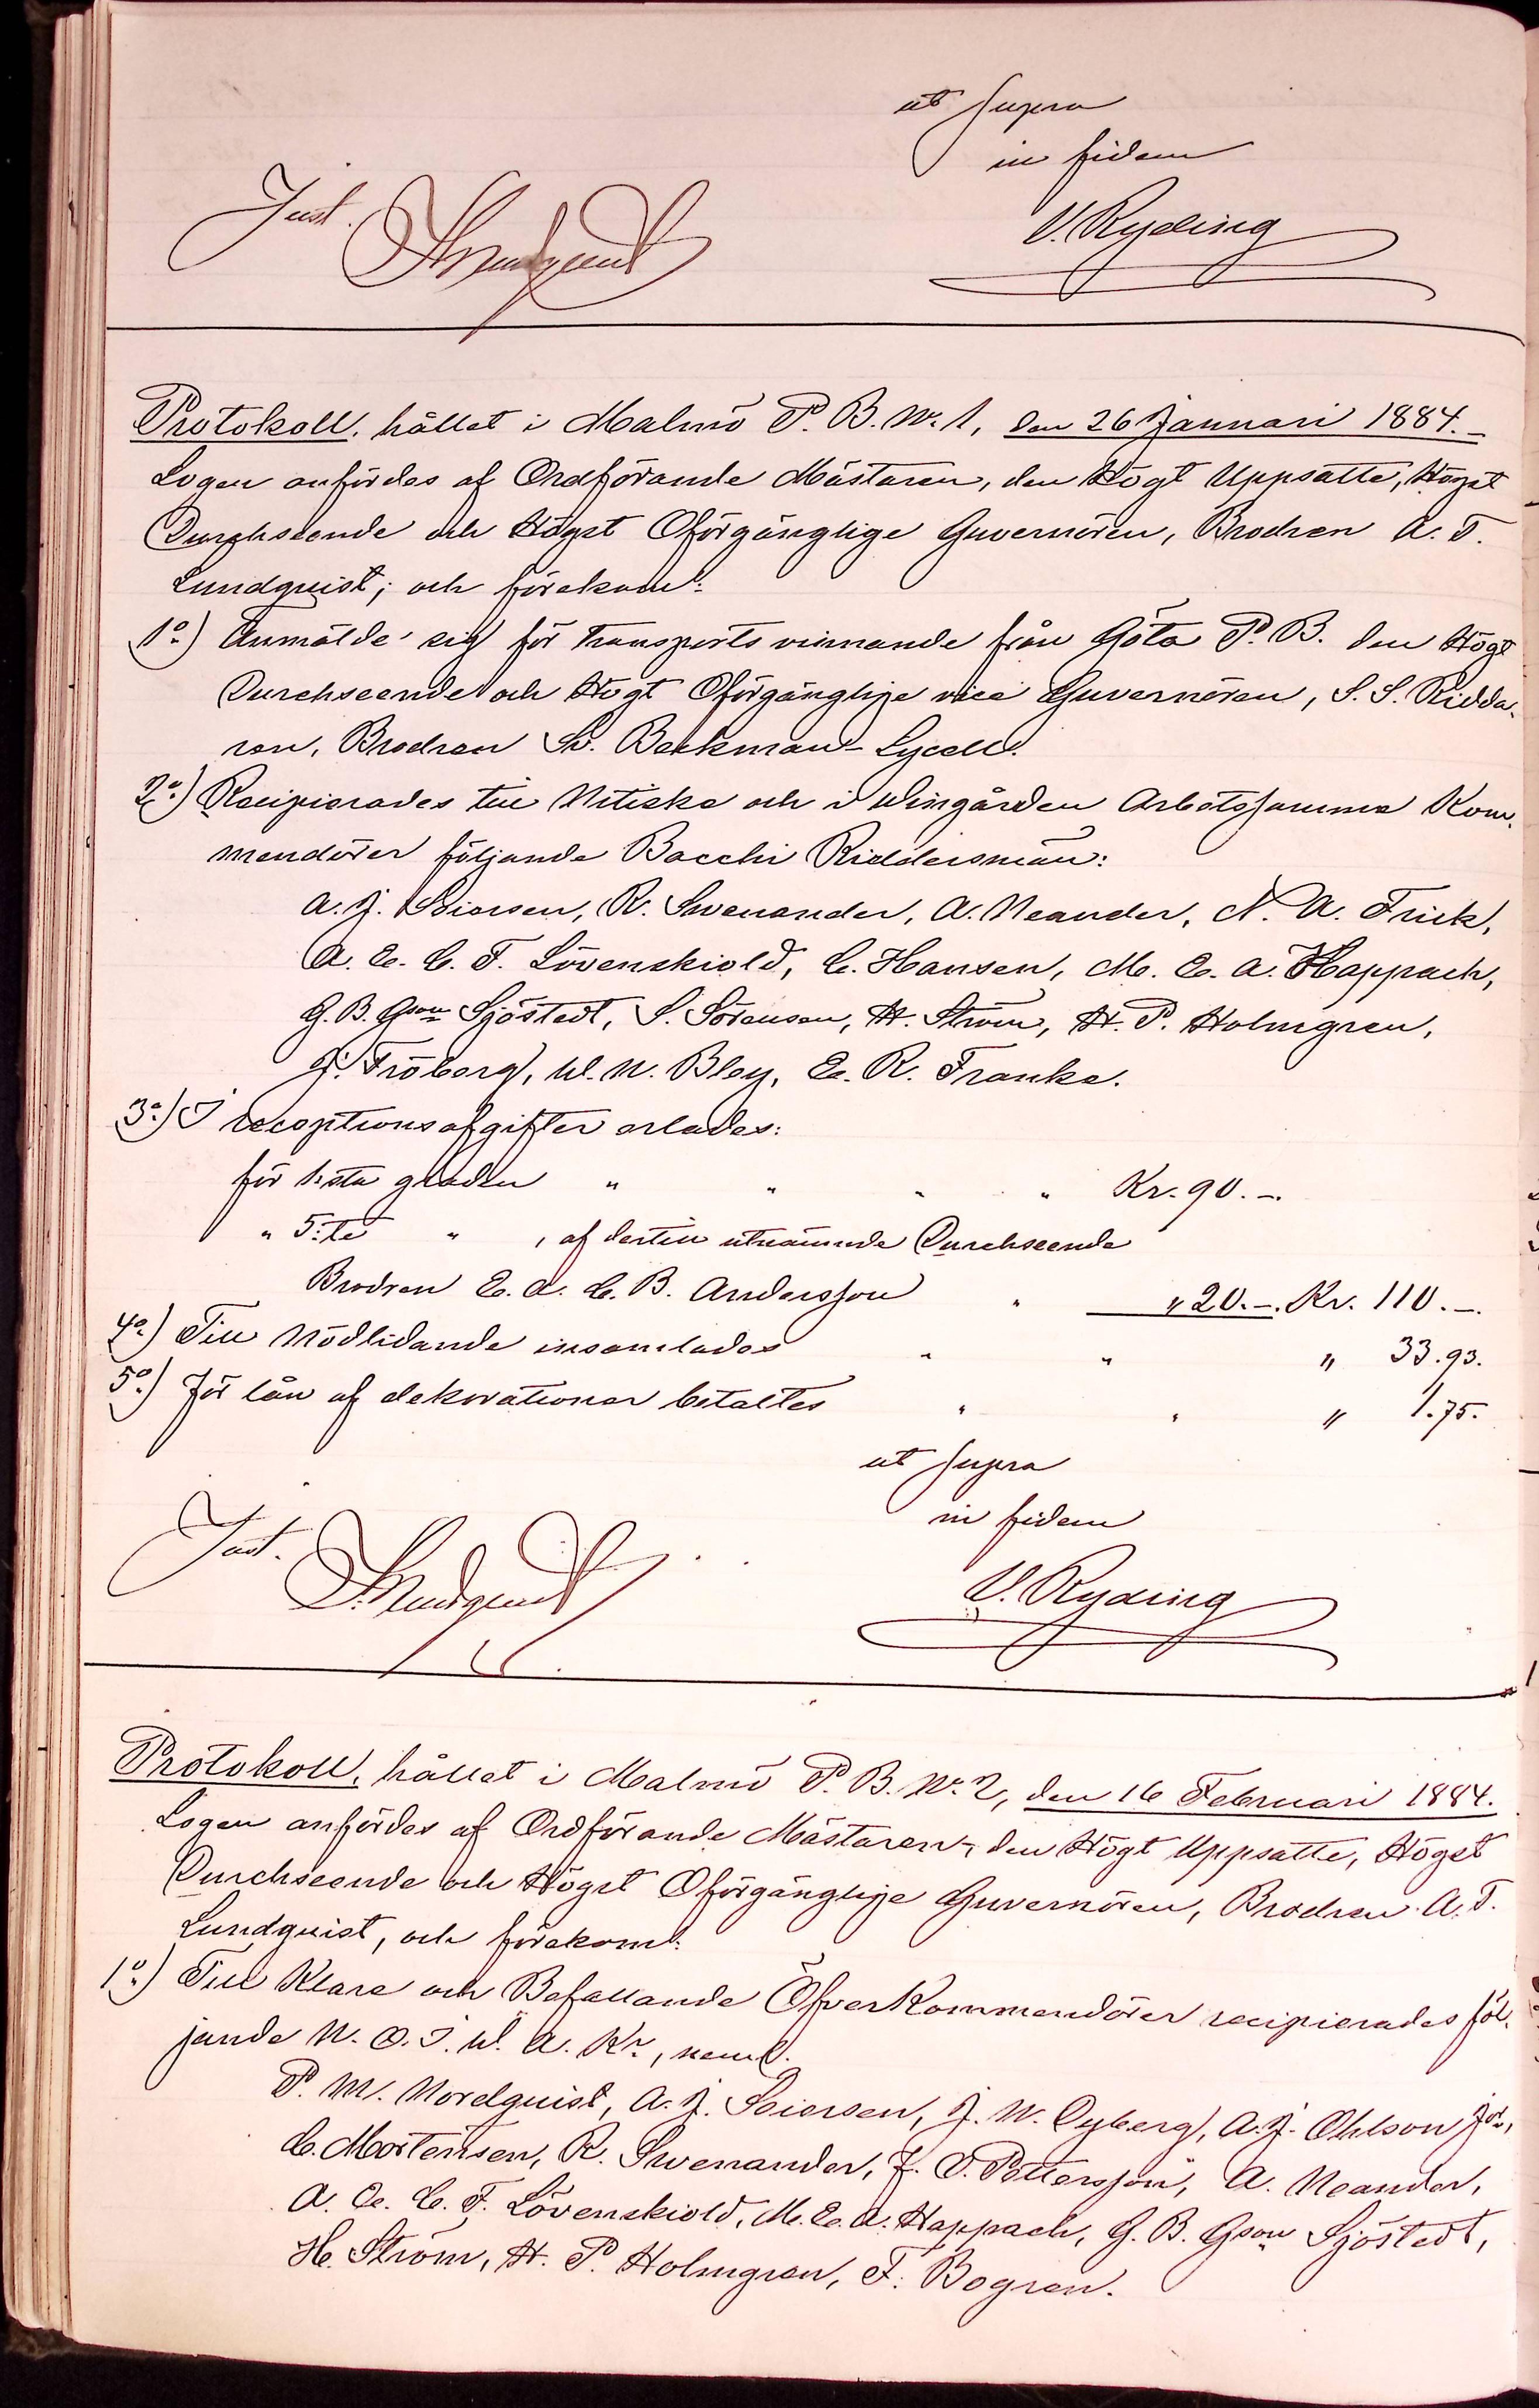 ut supra
in fidem
Just. Lundquist
V. Ryding
Protokoll, hållet i Malmö P. B. No. 1, den 26 Januari 1884.–
Logen anfördes af Ordförande Mästaren, den Högt Uppsatte, Högst
Durchseende och Högst Oförgänglige Guvernören, Brodren A. T.
Lundquist; och förekom:
1o.) Anmälde sig för transports vinnande från Göta P. B. den Högt
Durchseende och Högt Oförgänglige vice Guvernören, S. S. Ridda-
ren, Brodren Sv. Beckman-Lycell.
2o.) Recipierades till Nitiske och i Wingården Arbetssamma Kom-
mendörer följande Bacchi Riddersmän:
A. J. Seiersen, R. Swenander, A. Neander, N. A. Frick,
A. E. C. F. Lövenskiold, C. Hansen, M. E. A. Happach,
G. B. Gson Sjöstedt, S. Sörensen, H. Ström, H. P. Holmgren,
J. Fröberg, W. N. Bley, E. R. Franke.
3o.) I receptionsafgifter erlades:
för 1:sta graden " " " " Kr. 90.–.
" 5:te " , af dertill utnämnde Durchseende
Brodren E. A. C. B. Andersson " " 20.–. Kr. 110.–.
4o.) Till Nödlidande insamlades " " " 33.93.
5o.) För lån af dekorationer betaltes " " " 1.75.
ut supra
in fidem
Just. Lundquist
V. Ryding
Protokoll, hållet i Malmö P. B. No. 2, den 16 Februari 1884.
Logen anfördes af Ordförande Mästaren, den Högt Uppsatte, Högst
Durchseende och Högst Oförgänglige Guvernören, Brodren A. T.
Lundquist, och förekom:
1o.) Till Klare och Befallande ÖfverKommendörer recipierades föl-
jande N. O. I. W. A. Kr., neml.
P. M. Nordquist, A. J. Seiersen, J. W. Dyberg, A. J. Ohlson Jor,
C. Mortensen, R. Swenander, J. O. Pettersson, A. Neander,
A. E. C. F. Lövenskiold, M. E. A. Happach, G. B. Gson Sjöstedt,
H. Ström, H. P. Holmgren, F. Bogren.